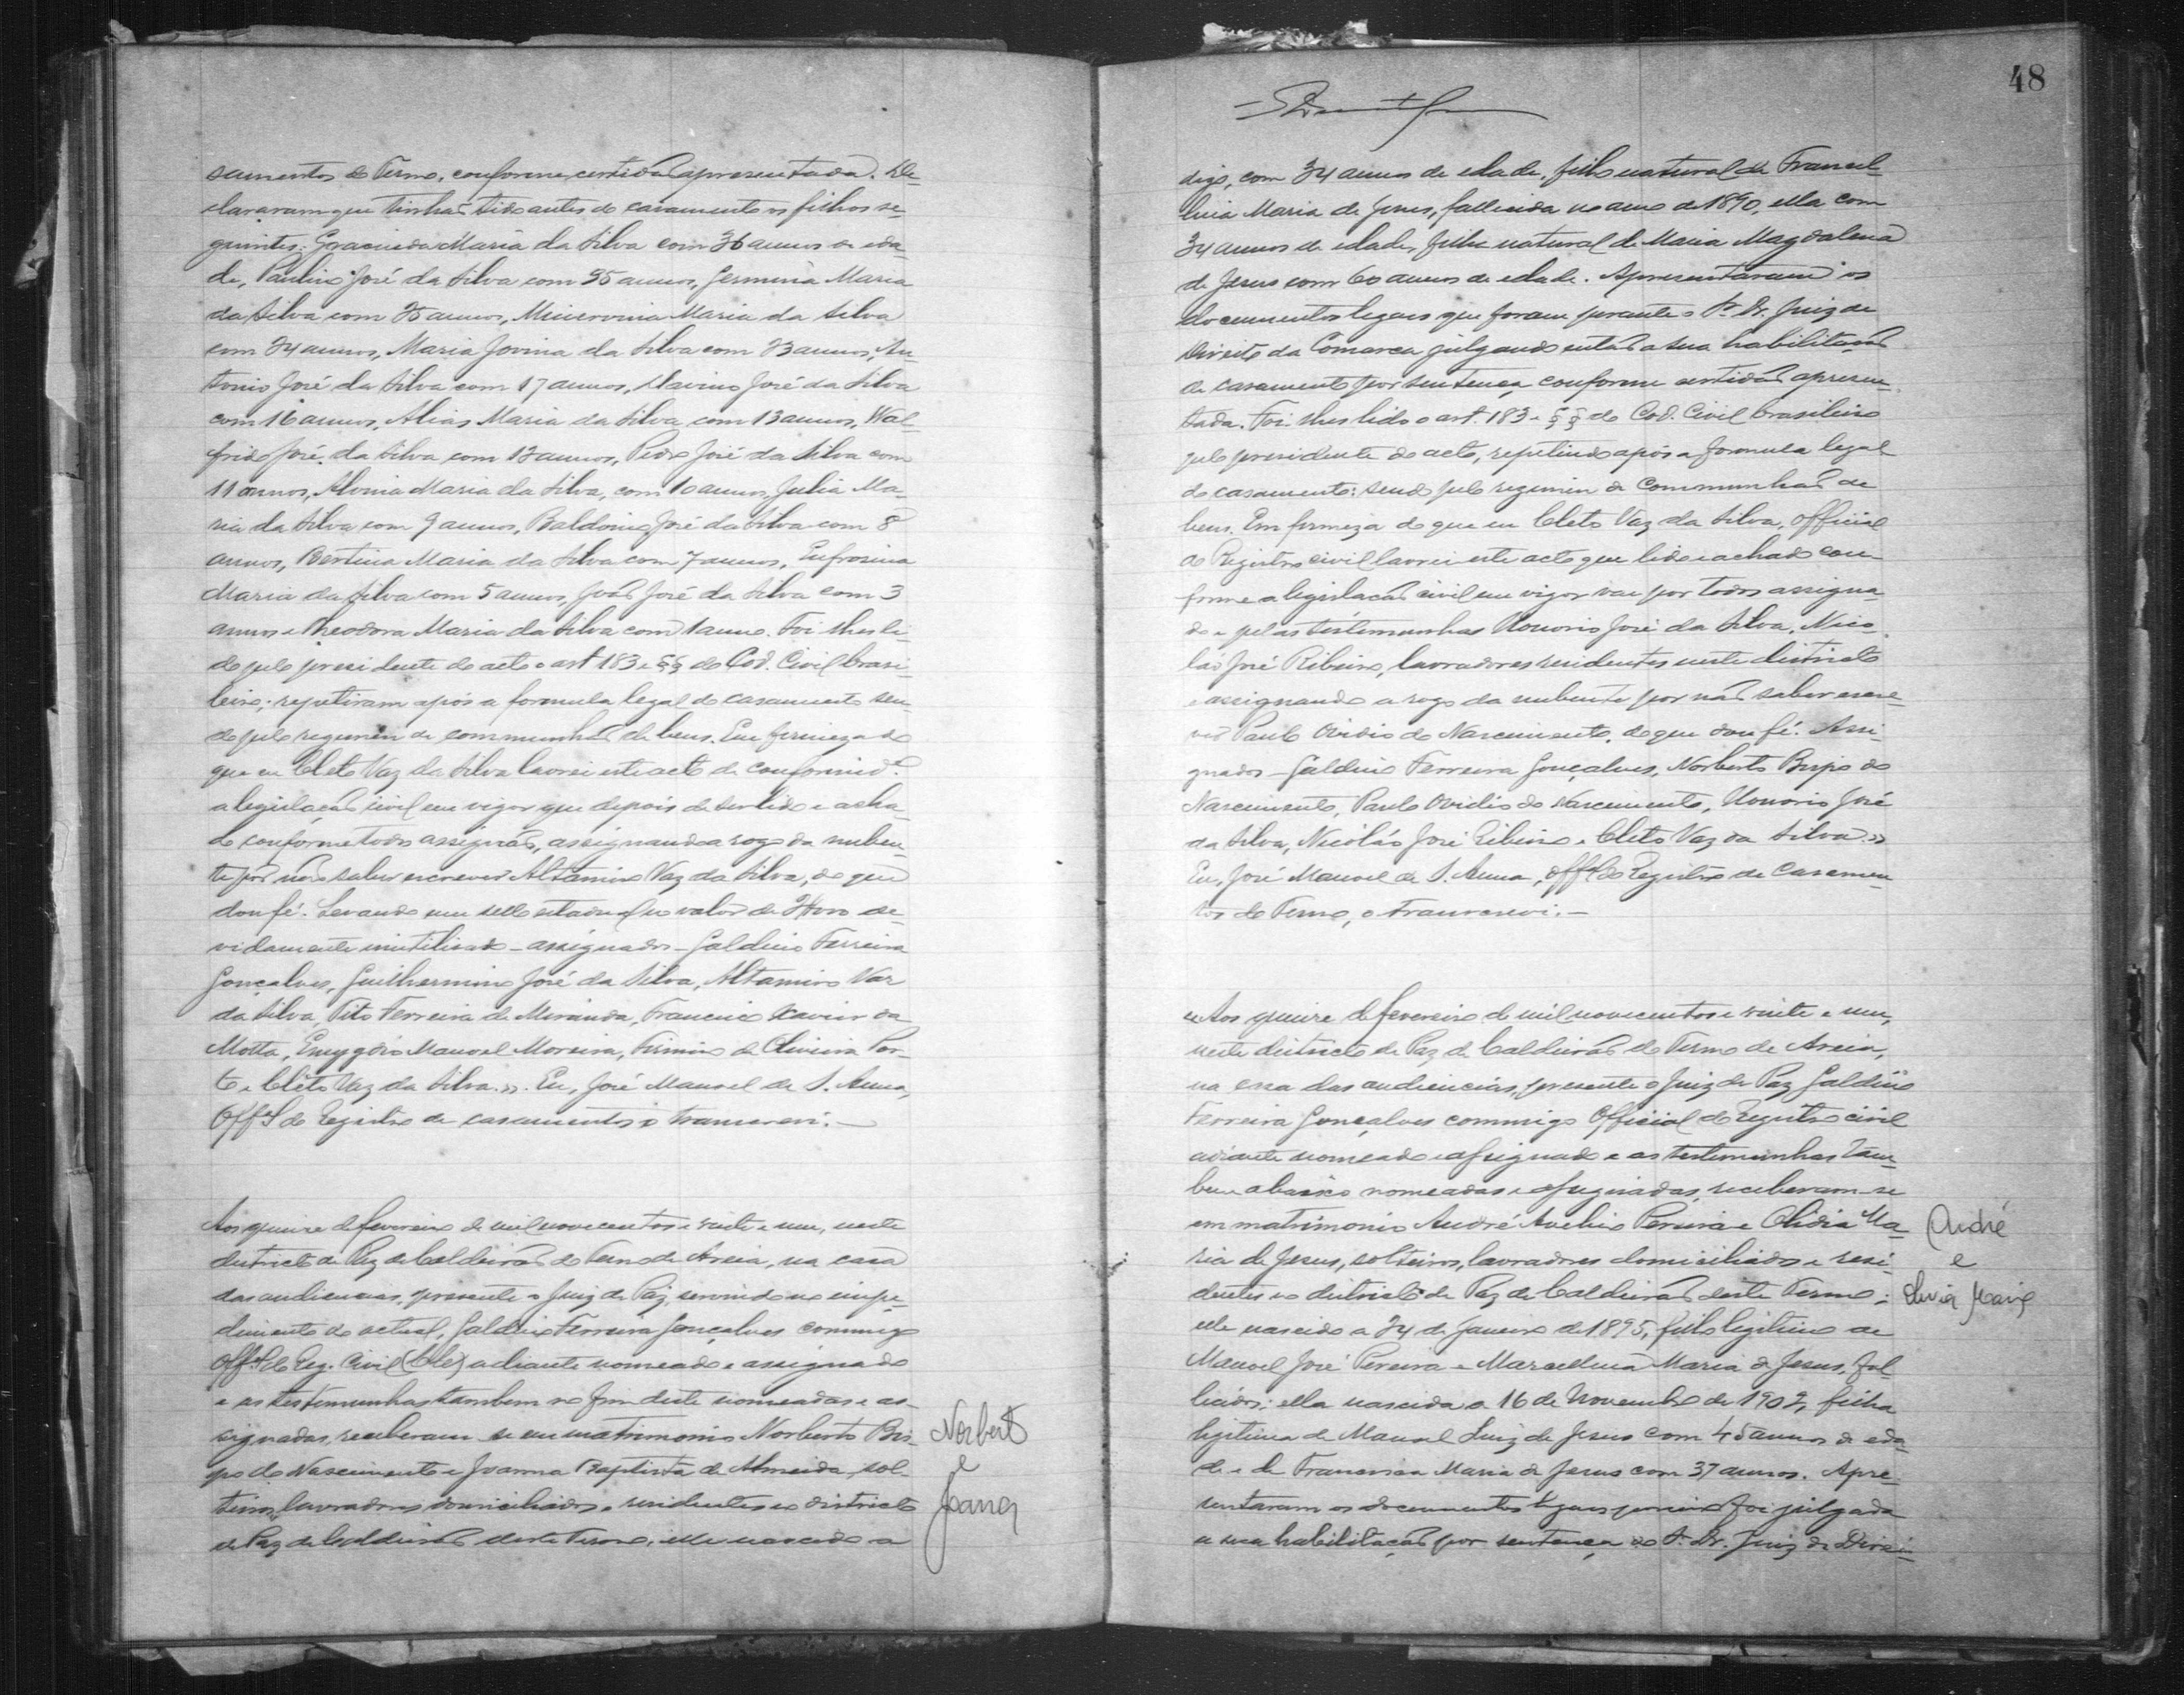 samentos do Termo, conforme certidão apresentada. De-
clararam que tinhão tido antes do casamento os filhos se-
guintes: Maria da Silva com 36 annos de eda-
de, Paulino José da Silva com 35 annos, Germina Maria
da Silva com 25 annos, Minervina Maria da Silva
com 24 annos, Maria Jovina da Silva com 23 annos, An-
tonio José da Silva com 17 annos, Flavino José da Silva
com 16 annos, Maria da Silva com 13 annos, Wal-
frido José da Silva com 12 annos, Pedro José da Silva com
11 annos, Alvina Maria da Silva, com 10 annos, Julia Ma-
ria da Silva com 9 annos, Baldoino José da Silva com 8
annos, Bertina Maria da Silva com 7 annos, Eufrosina
Maria da Silva com 5 annos, João José da Silva com 3
annos e Theodora Maria da Silva com 1 anno. Foi lhes li-
do pelo presidente do acto o art 183 e §§ do Cod. Civil brasi-
leiro; repetiram após a formula legal do casamento sen-
do pelo regimen de communhão de bens. Em firmeza do
que eu Cleto Vaz da Silva lavrei este acto de conformid.e
a legislação civil em vigor que depois de ser lido e acha-
do conforme todos assignão, assignando a rogo da nuben-
te por não saber escrever Altamiro Vaz da Silva, do que
dou fé. Levando um sello estadual no valor de de-
vidamente inutilisado - assignados - Galdino Ferreira
Gonçalves, Guilhermino José da Silva, Altamiro Vaz
da Silva, Tito Ferreira de Miranda, Francisco Xavier da
Motta, Emygdio Manoel Moreira, Firmino de Oliveira Por-
to e Cleto Vaz da Silva.». Eu, José Manoel de S. Anna,
Off.al do Registro de casamentos o transcrevi. —
Aos quinze de fevereiro de mil novecentos e vinte e um, neste
districto de Paz de Caldeirão do Termo de Areia, na casa
das audiencias, presente o Juiz de Paz, servindo no impe-
dimento do actual, Galdino Ferreira Gonçalves commigo
Off.al do Reg. Civil adiante nomeado e assignado
e as testemunhas tambem no fim deste nomeadas e as-
signadas, receberam se em matrimonio Norberto Bis-
po do Nascimento e Joanna Baptista de Almeida, sol-
teiros, lavradores domiciliados e residentes no districto
de Paz de Caldeirão deste Termo, elle nascido a
Norberto
e
Joana
48
digo, com 34 annos de edade, filho natural de Francel-
lina Maria de Jesus, fallecida no anno de 1890, ella com
34 annos de edade, filha natural de Maria Magdalena
de Jesus com 60 annos de edade. Apresentaram os
documentos legaes que foram perante o Sr. Dr. Juiz de
Direito da Comarca julgando então a sua habilitação
de casamento por sentença conforme certidão apresen-
tada. Foi lhes lido o art. 183 e §§ do Cod. Civil brasileiro
pelo presidente do acto, repetindo após a formula legal
do casamento: sendo pelo regimen de Communhão de
bens. Em firmeza do que eu Cleto Vaz da Silva, official
do Registro civil lavrei este acto que lido e achado con-
forme a legislação civil em vigor vae por todos assigna-
do e pelas testemunhas Honorio José da Silva, Nico-
lao José Ribeiro, lavradores residentes neste districto
e assignando a rogo da nubente por não saber escre-
ver Paulo Ovidio do Nascimento, do que dou fé. Assi-
gnados - Galdino Ferreira Gonçalves, Norberto Bispo do
Nascimento, Paulo Ovidio do Nascimento, Honorio José
da Silva, Nicoláo José Ribeiro e Cleto Vaz da Silva.»
Eu, José Manoel de S. Anna, off.al do Registro de Casamen-
tos do Termo, o transcrevi. —
«Aos quinze de fevereiro de mil novecentos e vinte e um,
neste districto de Paz de Caldeirão do Termo de Areia,
na casa das audiencias, presente o Juiz de Paz Galdino
Ferreira Gonçalves commigo Official do Registro civil
adiante nomeado e assignado e as testemunhas tam-
bem abaixo nomeadas e assignadas, receberam-se
em matrimonio André Avelino Pereira e Olidia Ma-
ria de Jesus, solteiros, lavradores domiciliados e resi-
dentes no districto de Paz de Caldeirão deste Termo;
elle nascido a 24 de Janeiro de 1895, filho legitimo de
Manoel José Pereira e Marcellina Maria de Jesus, fal-
lecidos; ella nascida a 16 de Novembro de 1902, filha
legitima de Manoel Luiz de Jesus com 45 annos de eda-
de e de Francisca Maria de Jesus com 37 annos. Apre-
sentaram os documentos legaes foi julgada
a sua habilitação por sentença do Sr. Dr. Juiz de Direi-
André
e
Maria